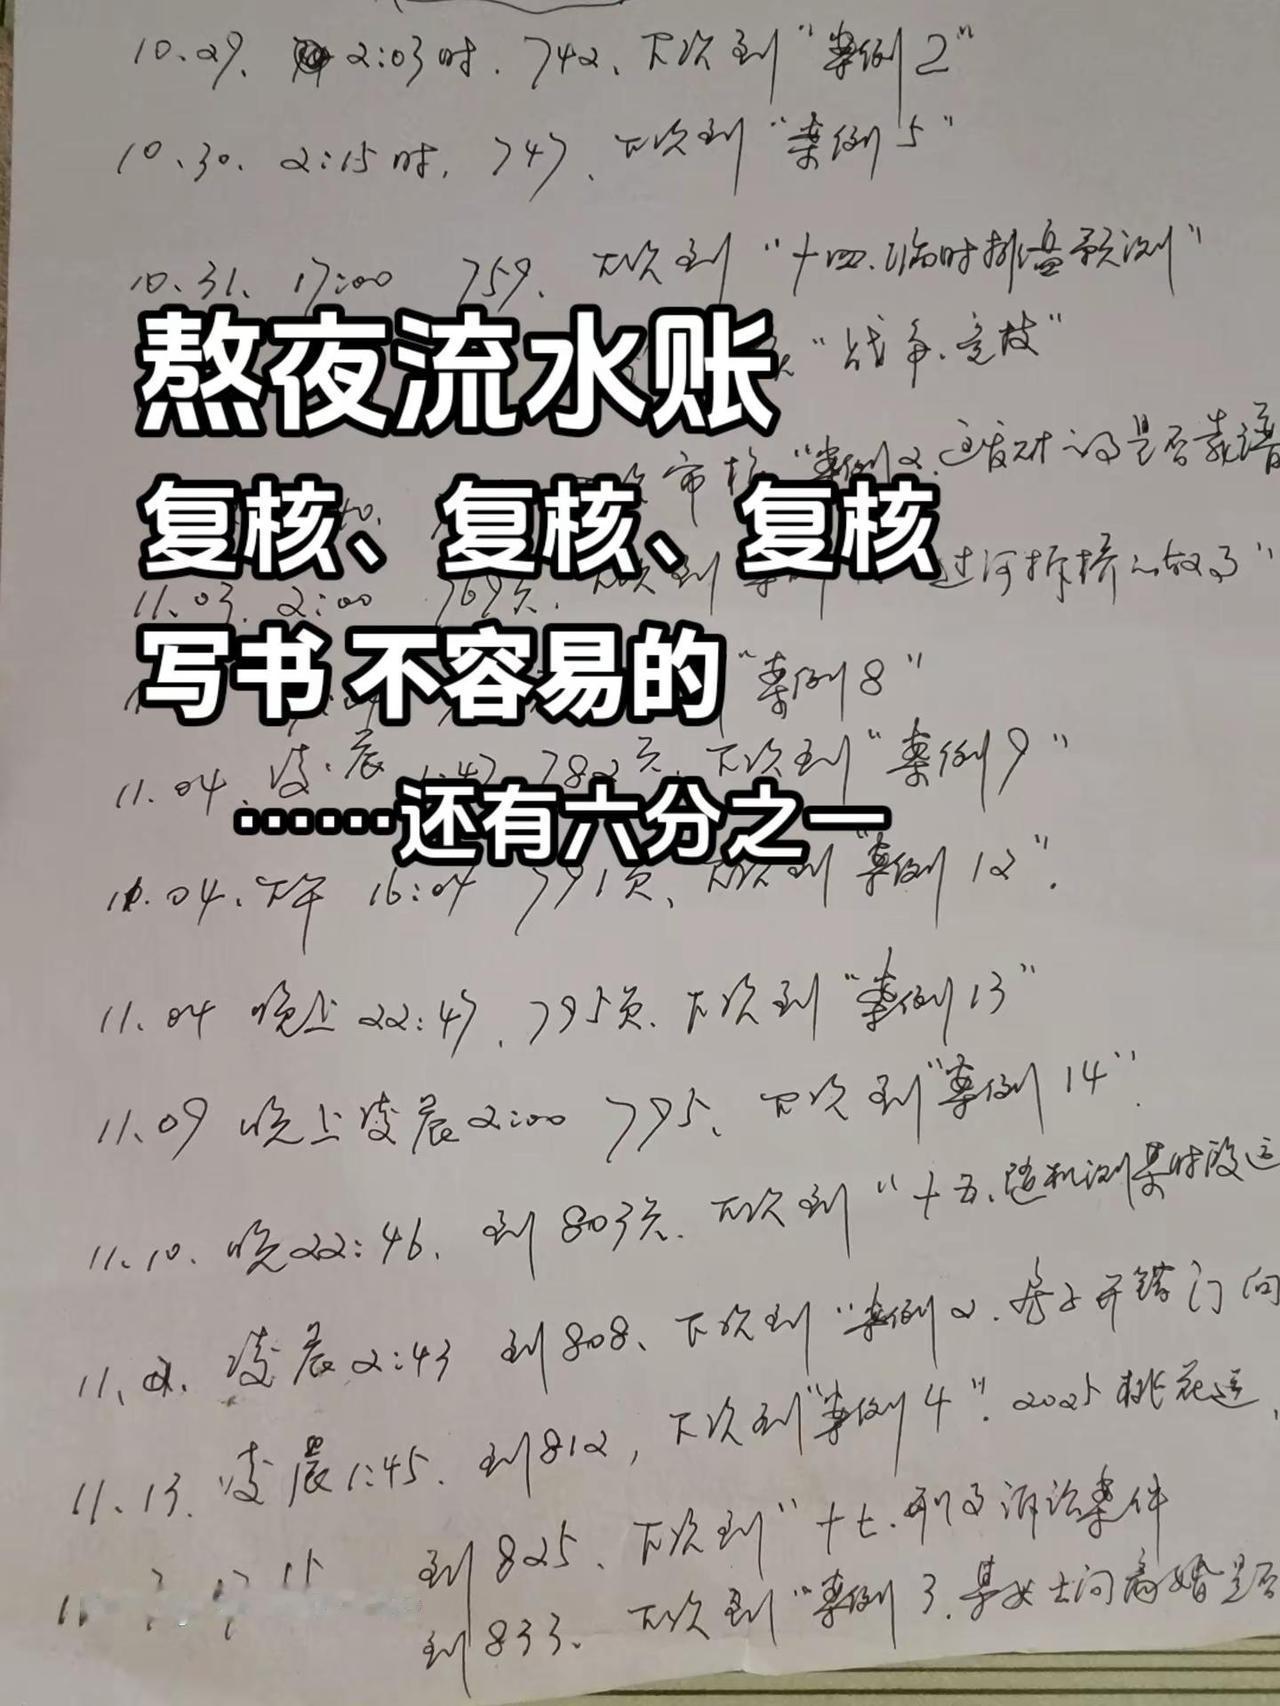 10.29、2:03时、742、下次到“案例2”
10.30、2:15时、747、下次到“案例5”
10.31、17:00 759、下次到“十四、临时排盘预测”
“战争、竞技”
熬夜流水账
审核“案例2、
复核、复核、复核
11.03、2:00 769页、下次到 过河拆桥的故事”
写书 不容易的
“案例8”
11.04、凌晨1:47 782页、下次到“案例9”
……还有六分之一
11.04、下午 16:04 791页、下次到“案例12”.
11.04 晚上22:47、795页、下次到“案例13”
11.09 晚上凌晨2:00 795、下次到“案例14”.
11.10、晚22:46、到803页、下次到“十五、随机测某时段运
凌晨2:43 到808、下次到“案例2、房子开错门向
11.13、凌晨1:45、到812，下次到“案例4”. 2025桃花运、
到825、下次到“十七、刑事诉讼案件
到833、下次到“案例3、某女士问离婚是否